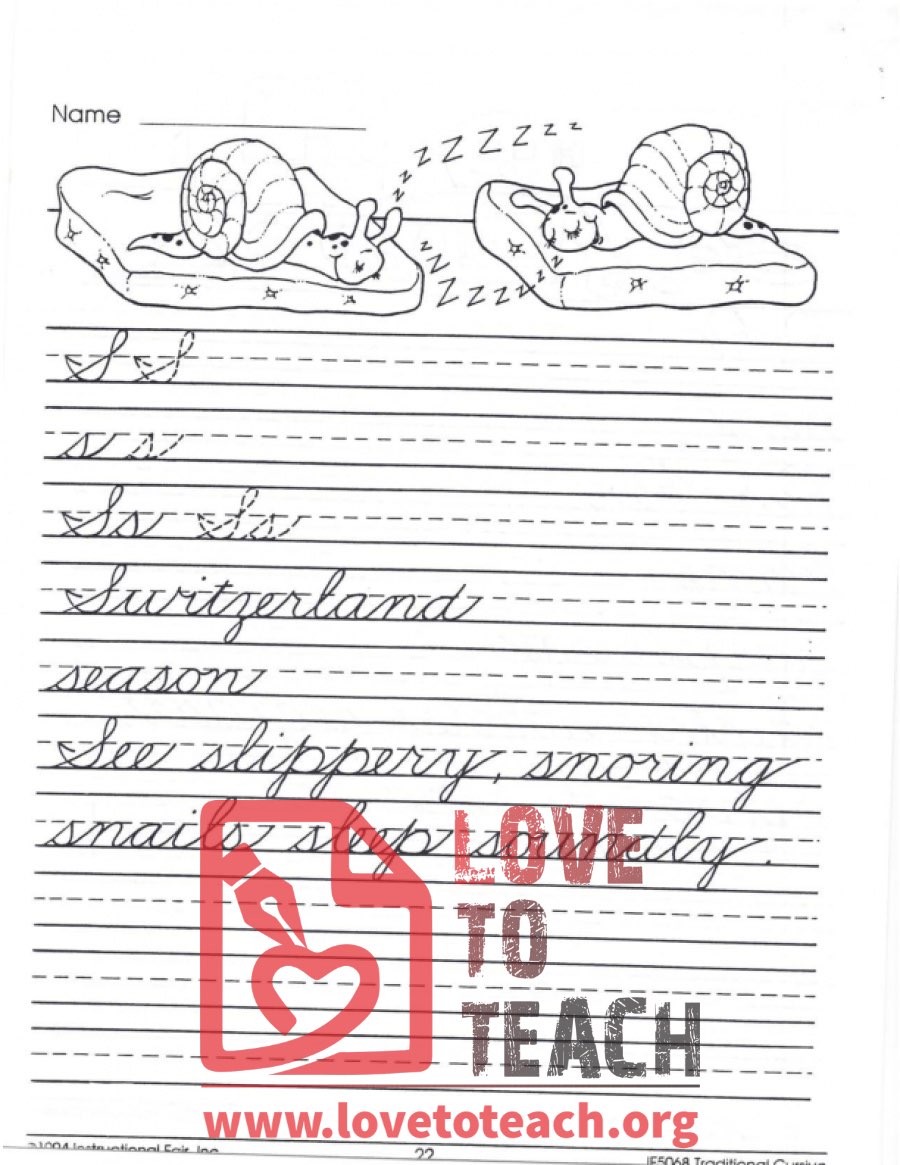 Name
z z z Z Z Z Z z z z
z z z Z Z Z Z z z z z
S S
s s
Ss Ss
Switzerland
season
See slippery, snoring
snails sleep soundly.
LOVE
TO
TEACH
www.lovetoteach.org
©1994 Instructional Fair, Inc. 22 IF5068 Traditional Cursive